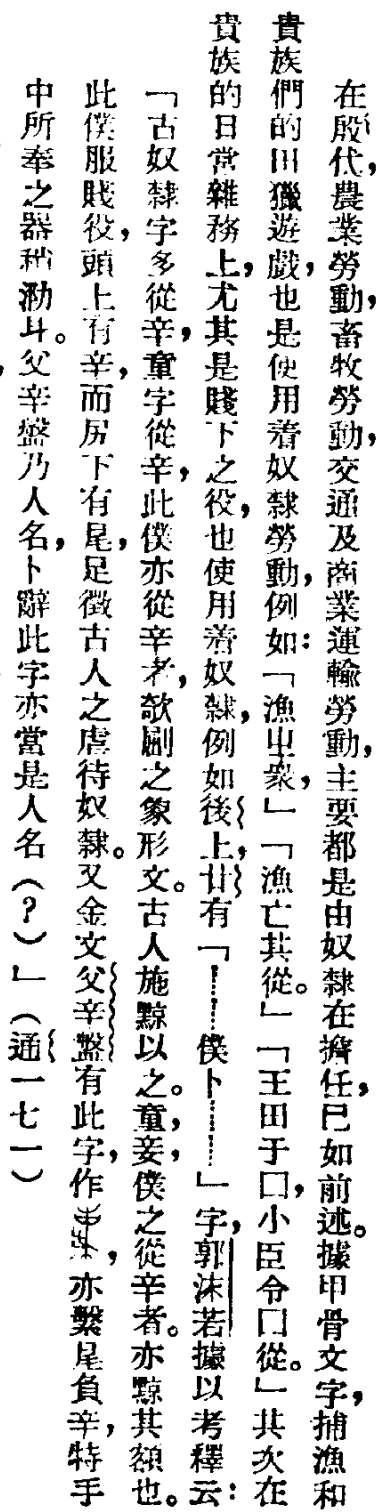 在殷代,農業勞動,畜牧勞動,交通及商業運輸勞動,主要都是由奴隸在擔任,已如前述。據甲骨文字,捕漁和
貴族們的田獵遊戲,也是使用着奴隸勞動,例如:「漁㞢衆,」「漁亡其從。」「王田于囗,小臣令囗從。」其次在
貴族的日常雜務上,尤其是賤下之役,也使用着奴隸,例如後上,廿有「………僕卜………」字,郭沫若據以考釋云:
「古奴隸字多從辛,童字從辛,此僕亦從辛者,欹劂之象形文。古人施黥以之。童,妾,僕之從辛者。亦黥其額也。
此僕服賤役,頭上有辛,而尻下有尾,足徵古人之虐待奴隸。又金文父辛盤有此字,作,亦繫尾負辛,特手
中所奉之器稍泐斗。父辛盤乃人名,卜辭此字亦當是人名(?)」(通一七一)